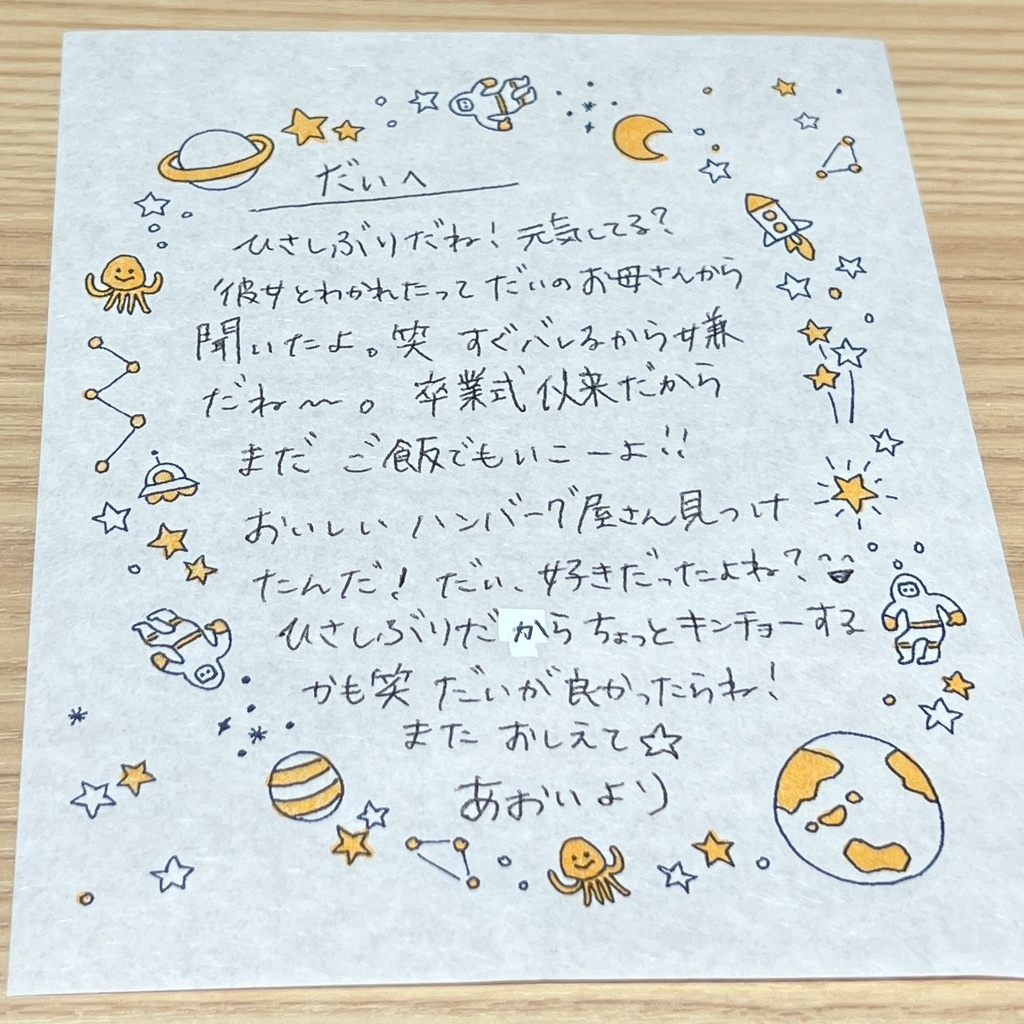 だいへ
ひさしぶりだね！元気してる？
彼女とわかれたって だいのお母さんから
聞いたよ。笑 すぐバレるから嫌
だね〜。卒業式以来だから
まだ ご飯でもいこーよ!!
おいしい ハンバーグ屋さん見つけ
たんだ！だい、好きだったよね？
ひさしぶりだからちょっとキンチョーする
かも笑 だいが良かったらね！
また おしえて☆
あおいより